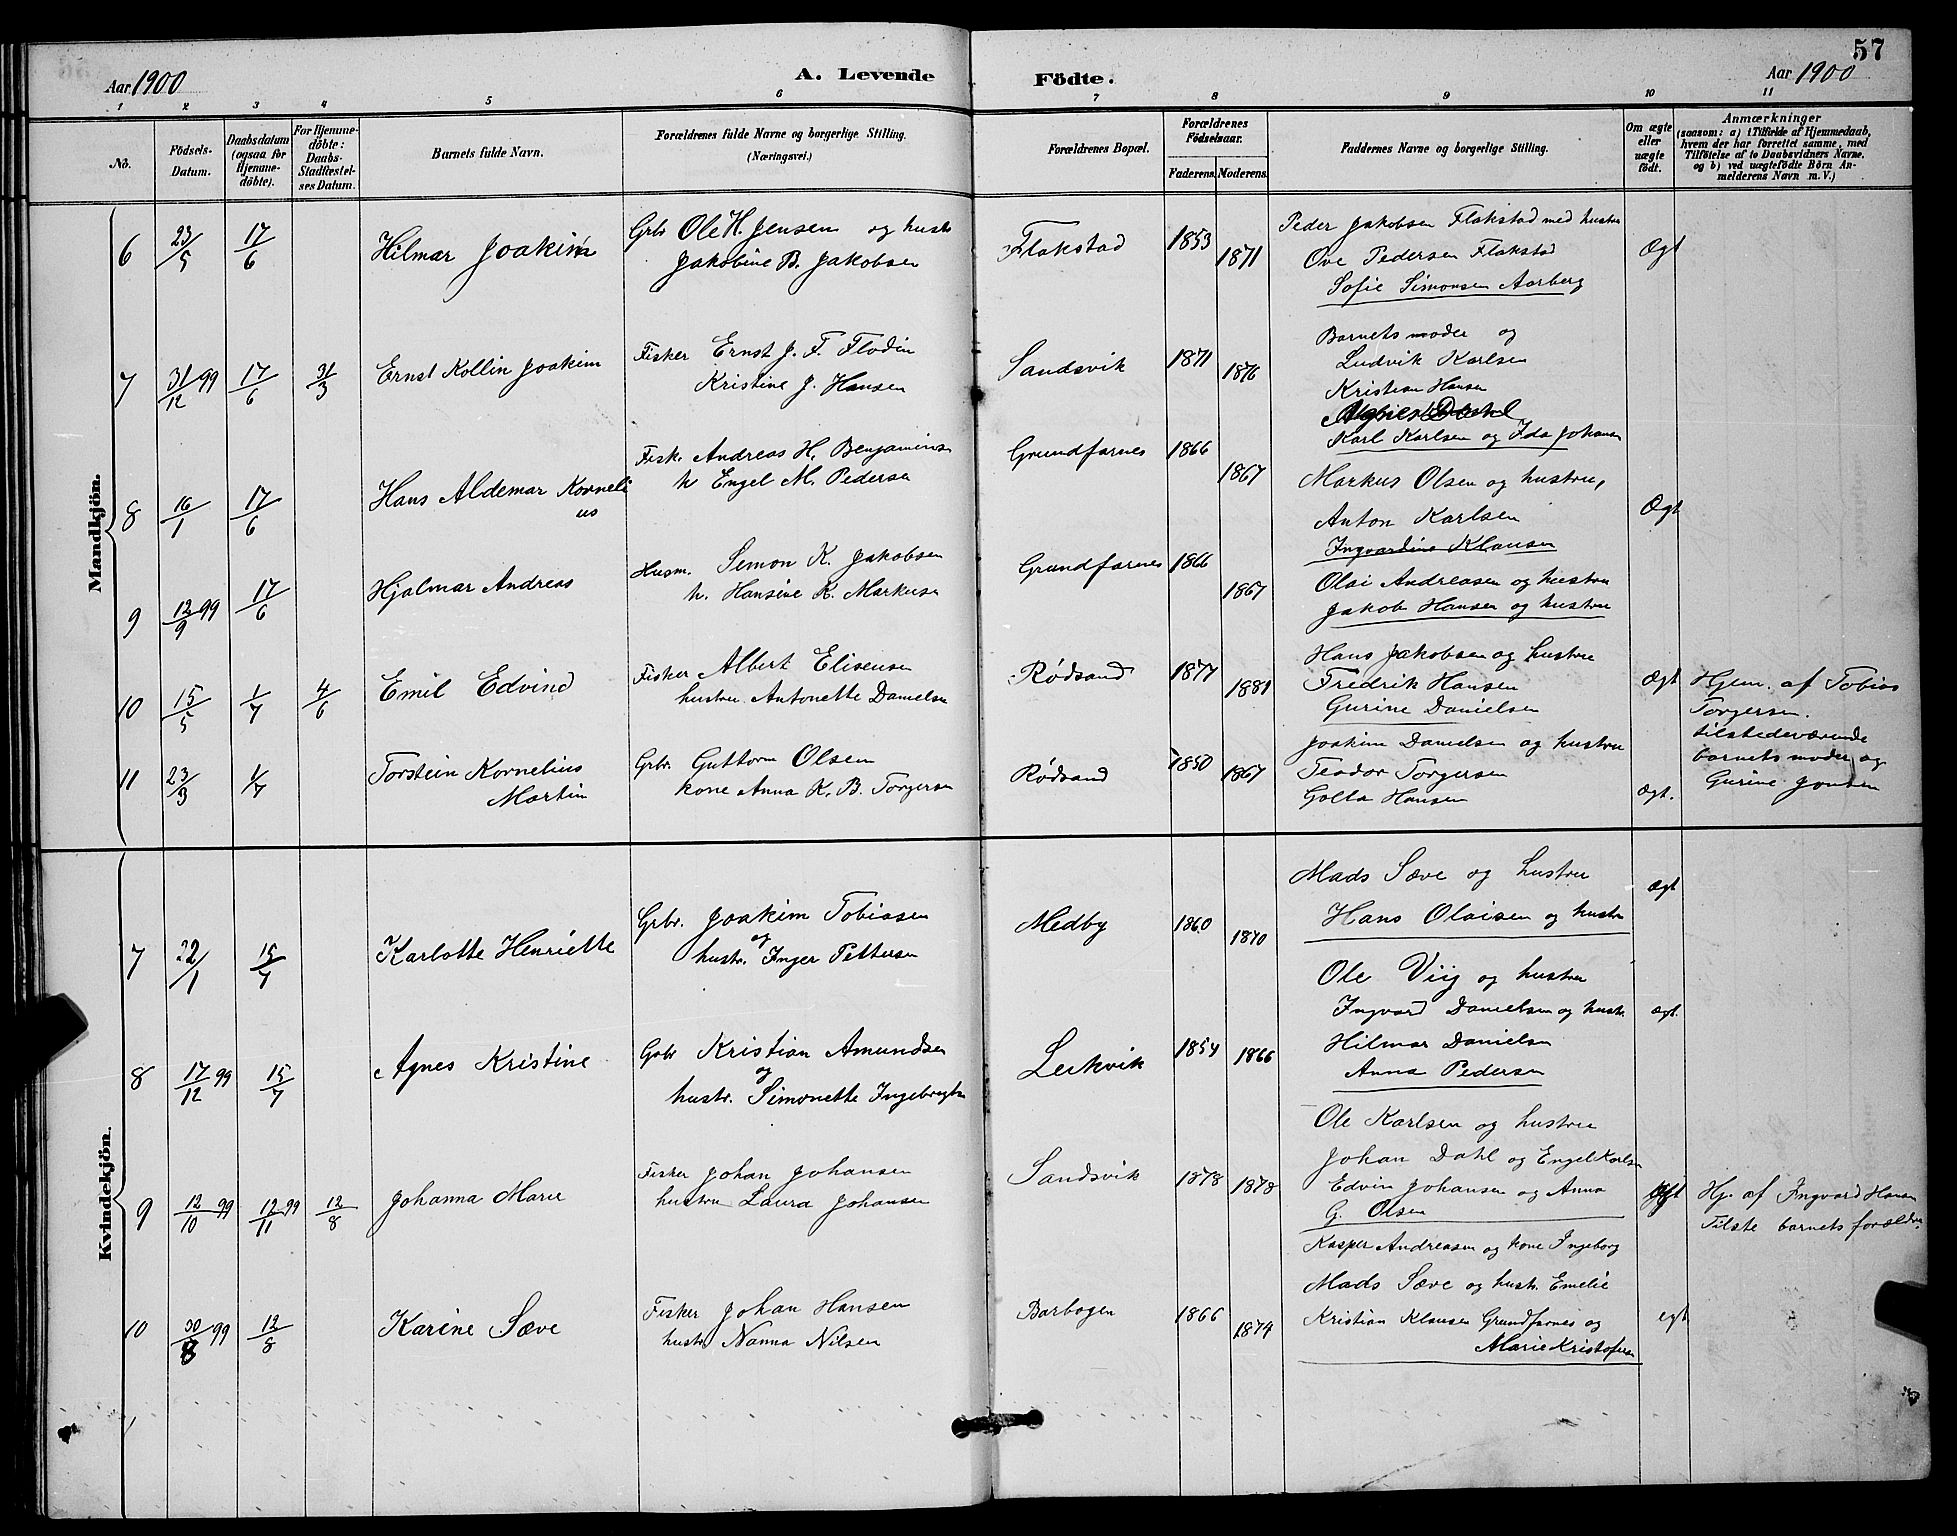 57
Aar 1900
A. Levende
Födte.
Aar 1900
1 2 3 4 5 6 7 8 9 10 11
No.
Födsels-
Datum.
Daabsdatum
(ogsaa for
Hjemme-
döbte).
For Hjemme-
döbte:
Daabs-
Stadfæstel-
ses Datum.
Barnets fulde Navn.
Forældrenes fulde Navne og borgerlige Stilling.
(Næringsvei.)
Forældrenes Bopæl.
Forældrenes
Födselsaar.
Faderens. Moderens.
Faddernes Navne og borgerlige Stilling.
Om ægte
eller
uægte
födt.
Anmærkninger
(saasom: a) i Tilfælde af Hjemmedaab,
hvem der har forrettet samme, med
Tilföielse af to Daabsvidners Navne,
og b) ved uægtefödte Börn An-
melderens Navn m. V.)
Mandkjön.
6 23/5 17/6 Hilmar Joakim
Grbr Ole H. Jensen og hustr
Jakobine B. Jakobsen
Flakstad 1853 1871
Peder Jakobsen Flakstad med hustru
Ove Pedersen Flakstad
Sofie Simonsen Aarberg
Ægt
7 31/12 99 17/6 31/3 Ernst Kollin Joakim
Fisker Ernst J. F. Flodin
Kristine J. Hansen
Sandsvik 1871 1876
Barnets moder og
Ludvik Karlsen
Kristian Hansen
Karl Karlsen og Ida Johansn
8 16/1 17/6 Hans Aldemar Korneli
us
Fisk. Andreas H. Benjaminsn
h. Engel M. Pedersn
Grundfarnes 1866 1867
Markus Olsen og hustru,
Anton Karlsen
Ingvardine Klausen
Ægt
9 12/9 99 17/6 Hjalmar Andreas
Husm. Simon K. Jakobsen
h. Hansine K. Markusn
Grundfarnes 1866 1867
Olai Andreasen og hustru
Jakob Hansen og hustru
10 15/5 1/7 4/6 Emil Edvind
Fisker Albert Elisensen
hustru Antonette Danielsn
Rødsand 1877 1881
Hans Jakobsen og hustru
Fredrik Hansen
Gurine Danielsen
Ægt
Hjem. af Tobias
Torgersen.
tilstedeværende
barnets moder og
Gurine Jonsen
11 23/3 1/7 Torstein Kornelius
Martin
Grbr. Guttorm Olsen
kone Anna K. B. Torgersn
Rødsand 1850 1867
Joakim Danielsen og hustru
Teodor Torgersen
Golta Hansen
Ægt.
Kvindekjön.
7 22/1 15/7 Karlotte Henriette
Grbr. Joakim Tobiasen
og
hustr. Inger Pettersen
Medby 1860 1870
Mads Sæve og hustru
Hans Olaisen og hustr
Ægt
8 17/12 99 15/7 Agnes Kristine
Grbr Kristian Amundsen
og
hustr. Simonette Ingebrigtsn
Leikvik 1854 1866
Ole Viig og hustru
Ingvard Danielsen og hustr
Hilmar Danielsn
Anna Pedersen
ægt.
9 12/10 99 12/11 99 12/8 Johanna Marie
Fisker Johan Johansen
hustru Laura Johansen
Sandsvik 1878 1878
Ole Karlsen og hustru
Johan Dahl og Engel Karlsn
Edvin Johansen og Anna
G. Olsen
Ægt
Hj. af Ingvard Hansn
Tilste barnets forældre.
10 30/8 99 12/8 Karine Sæve
Fisker Johan Hansen
hustr Nanna Nilsen
Barbogen 1866 1874
Kasper Andreasen og kone Ingeborg
Mads Sæve og hustr. Emelie
Kristian Klausen Grundfarnes og
Marie Kristofersn
egt